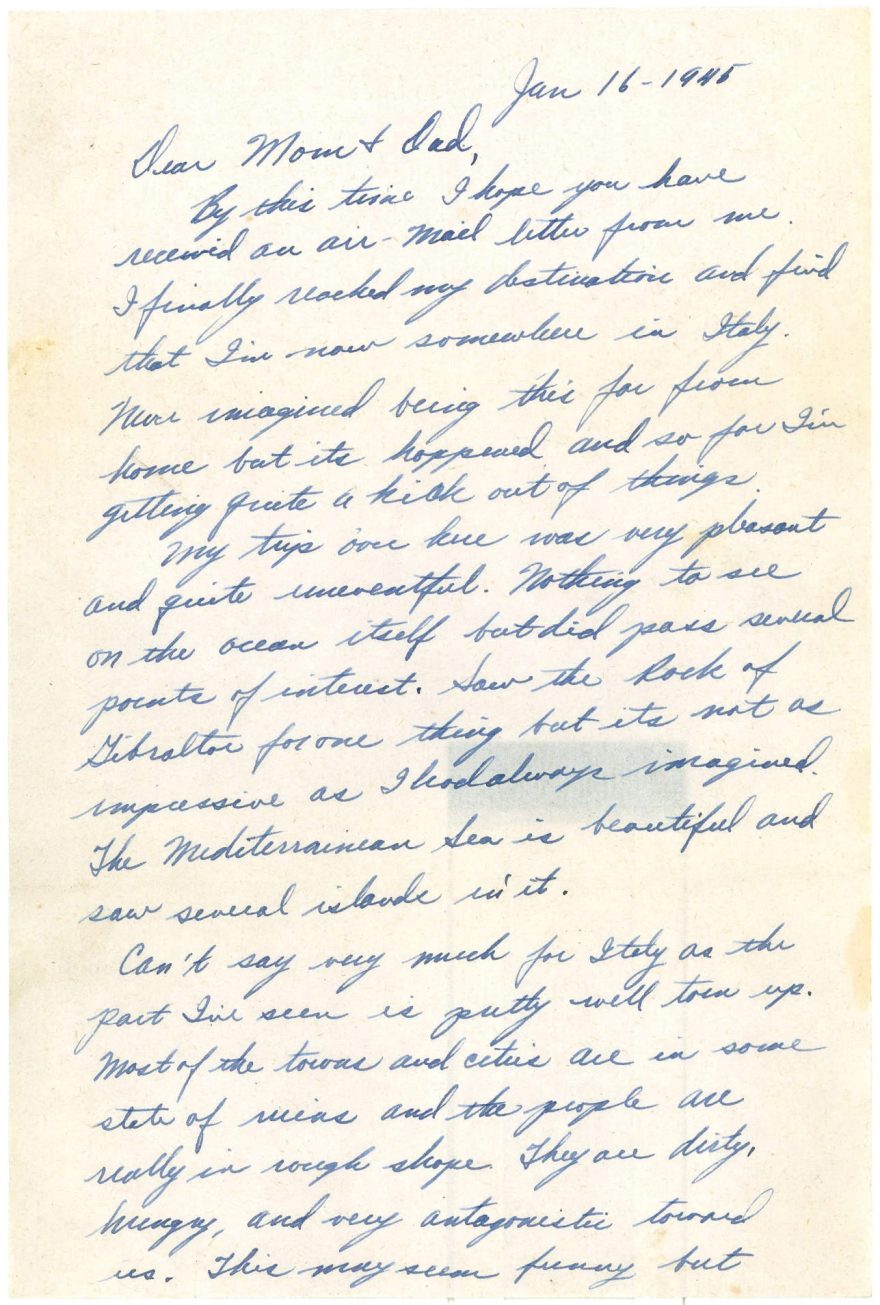 Jan 16-1945
Dear Mom & Dad,
By this time I hope you have
received an air-mail letter from me.
I finally reached my destination and find
that I'm now somewhere in Italy.
Never imagined being this far from
home but its happened and so far I'm
getting quite a kick out of things.
My trip over here was very pleasant
and quite uneventful. Nothing to see
on the ocean itself but did pass several
points of interest. Saw the Rock of
Gibraltar for one thing but its not as
impressive as I had always imagined.
The Mediterrainean Sea is beautiful and
saw several islands in it.
Can't say very much for Italy as the
part I've seen is pretty well torn up.
Most of the towns and cities are in some
state of ruins and the people are
really in rough shape. They are dirty,
hungry, and very antagonistic toward
us. This may seem funny but